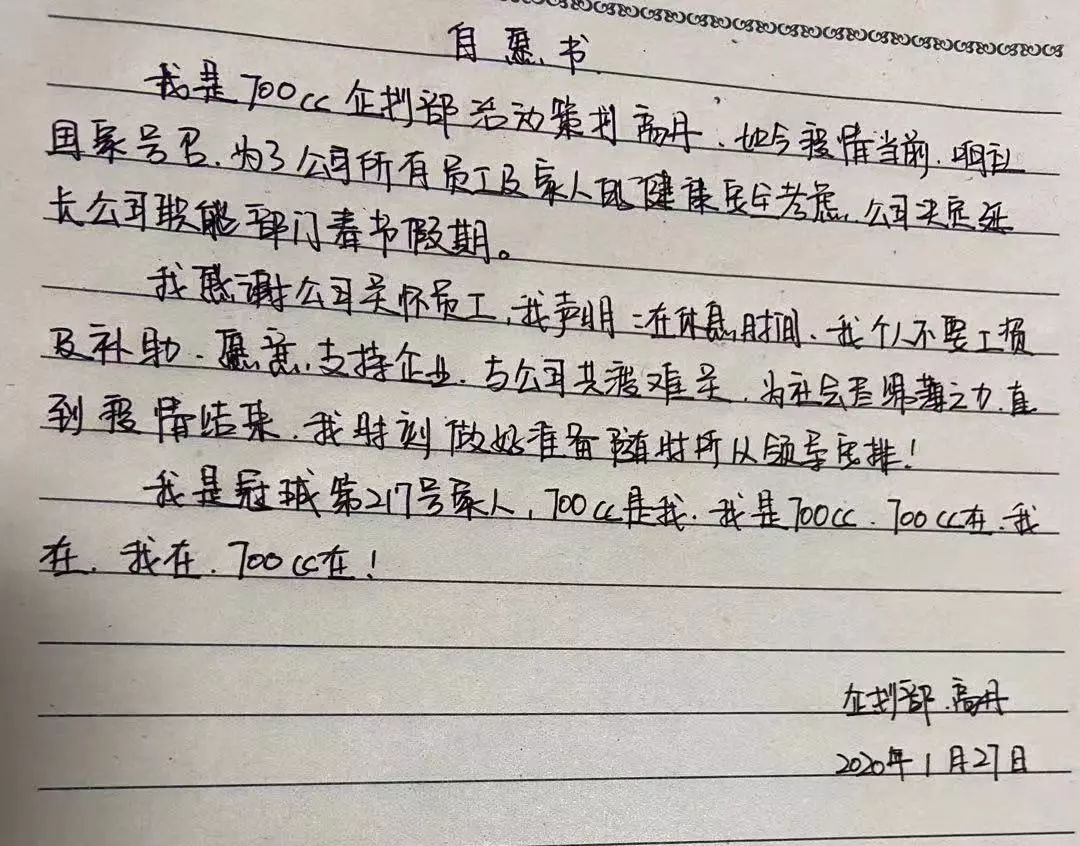 自愿书
我是700cc企划部活动策划高丹，如今疫情当前，响应
国家号召，为了公司所有员工及家人的健康安全考虑，公司决定延
长公司职能部门春节假期。
我感谢公司关怀员工，我声明：在休息时间，我个人不要工资
及补助，愿意支持企业，与公司共渡难关，为社会尽绵薄之力，直
到疫情结束，我时刻做好准备随时听从领导安排！
我是冠珹第217号家人，700cc是我，我是700cc，700cc在，我
在，我在，700cc在！
企划部 高丹
2020年1月27日